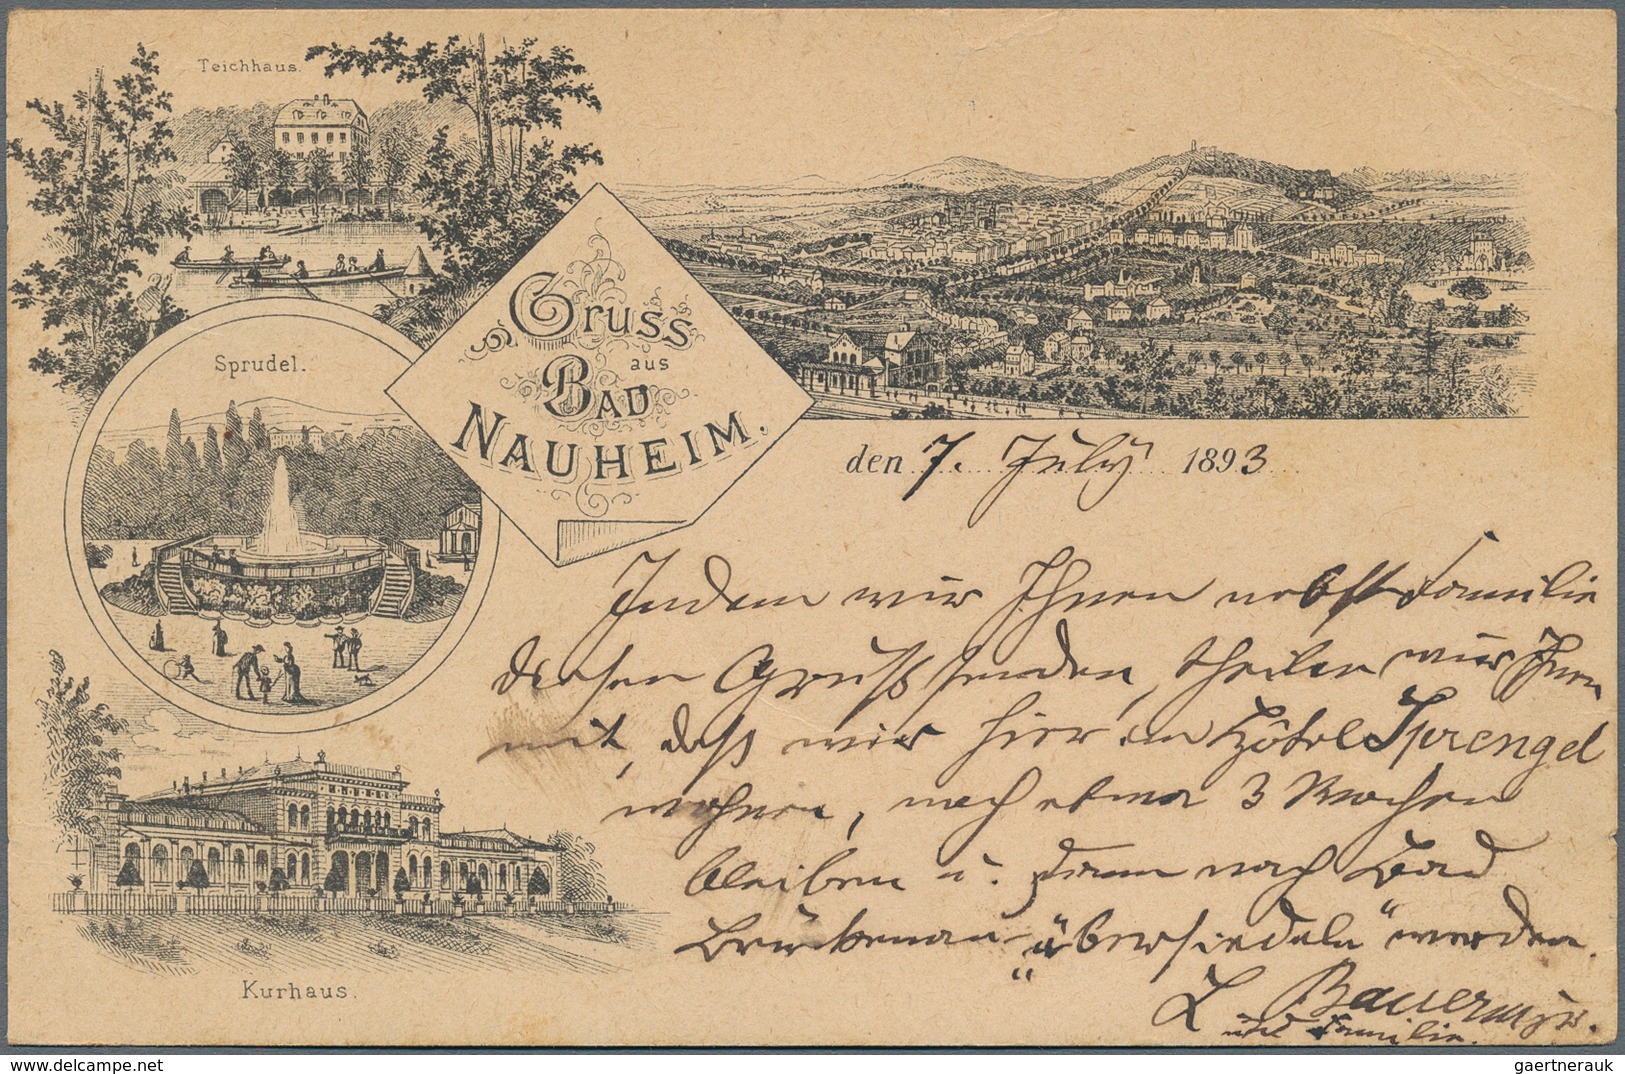 Teichhaus.
Sprudel.
Gruss
aus
Bad
Nauheim.
den 7. July 1893
Indem wir Ihnen nebst Familie
diesen Gruß senden, theilen wir Ihnen
mit, daß wir hier im Hôtel Sprengel
wohnen, noch etwa 3 Wochen
bleiben u. dann nach Bad
Brückenau „übersiedeln“ werden.
L Bauermstr.
und Familie.
Kurhaus.
delcampe.net
gaertnerauk